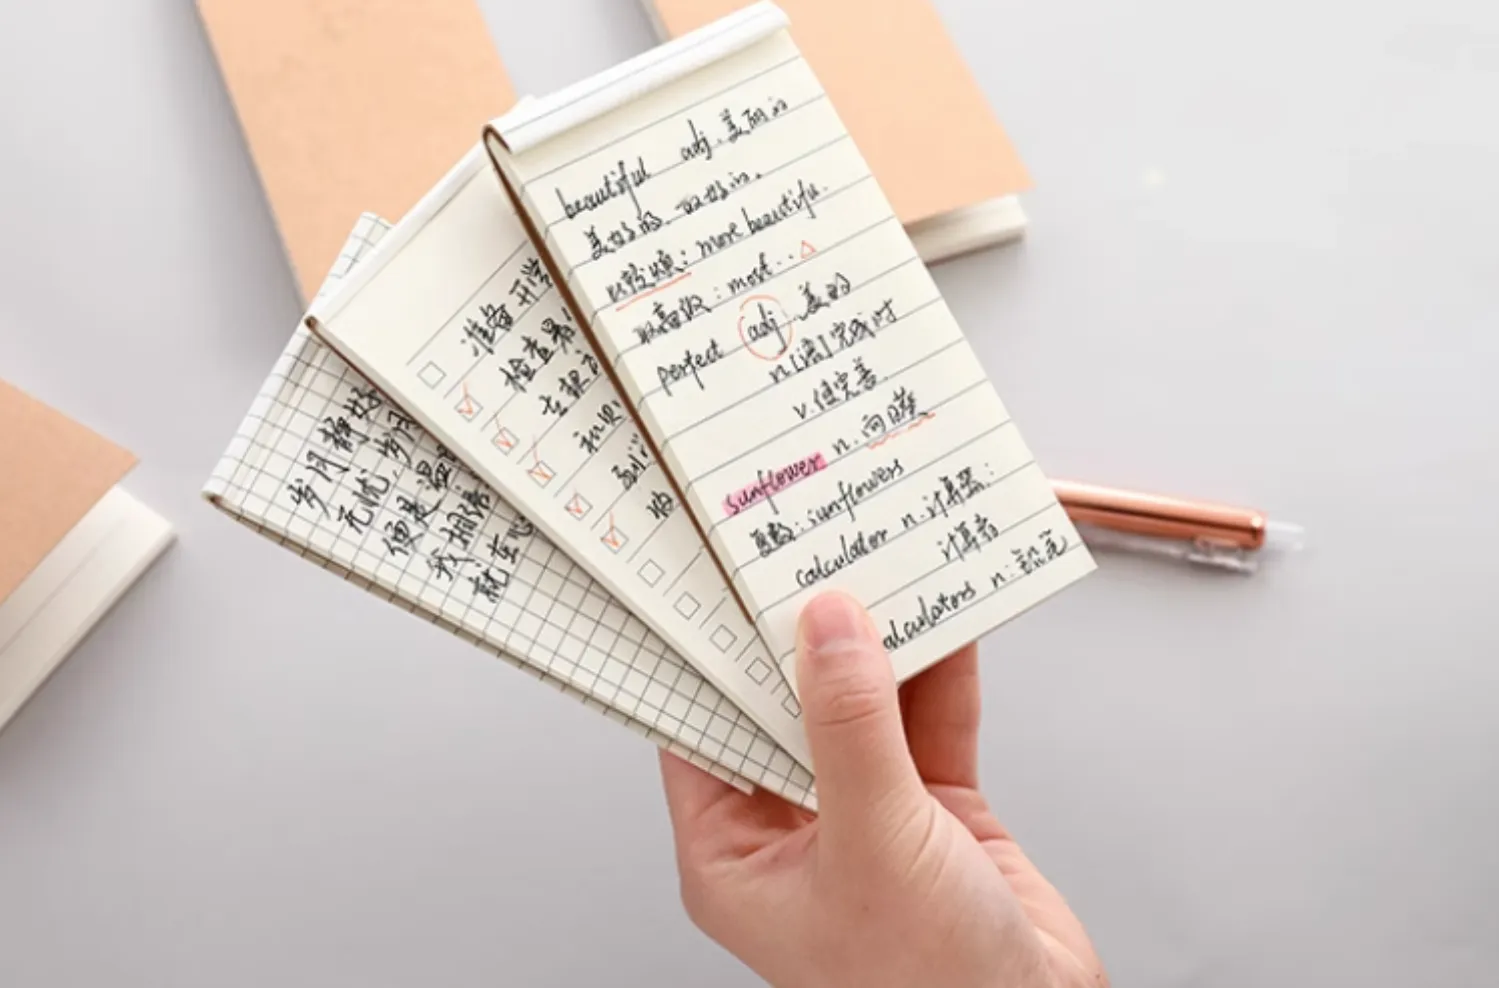 beautiful adj. 美丽的
美好的. 极好的.
比较级: more beautiful.
最高级: most..△
perfect adj. 美的
n.[语]完成时
v.使完善.
sunflower n. 向日葵
复数: sunflowers
calculator n. 计算器:
计算者
alculators n:
准备开学
检查暑
岁月静好
无忧,岁月
便是温
我拥
就在心